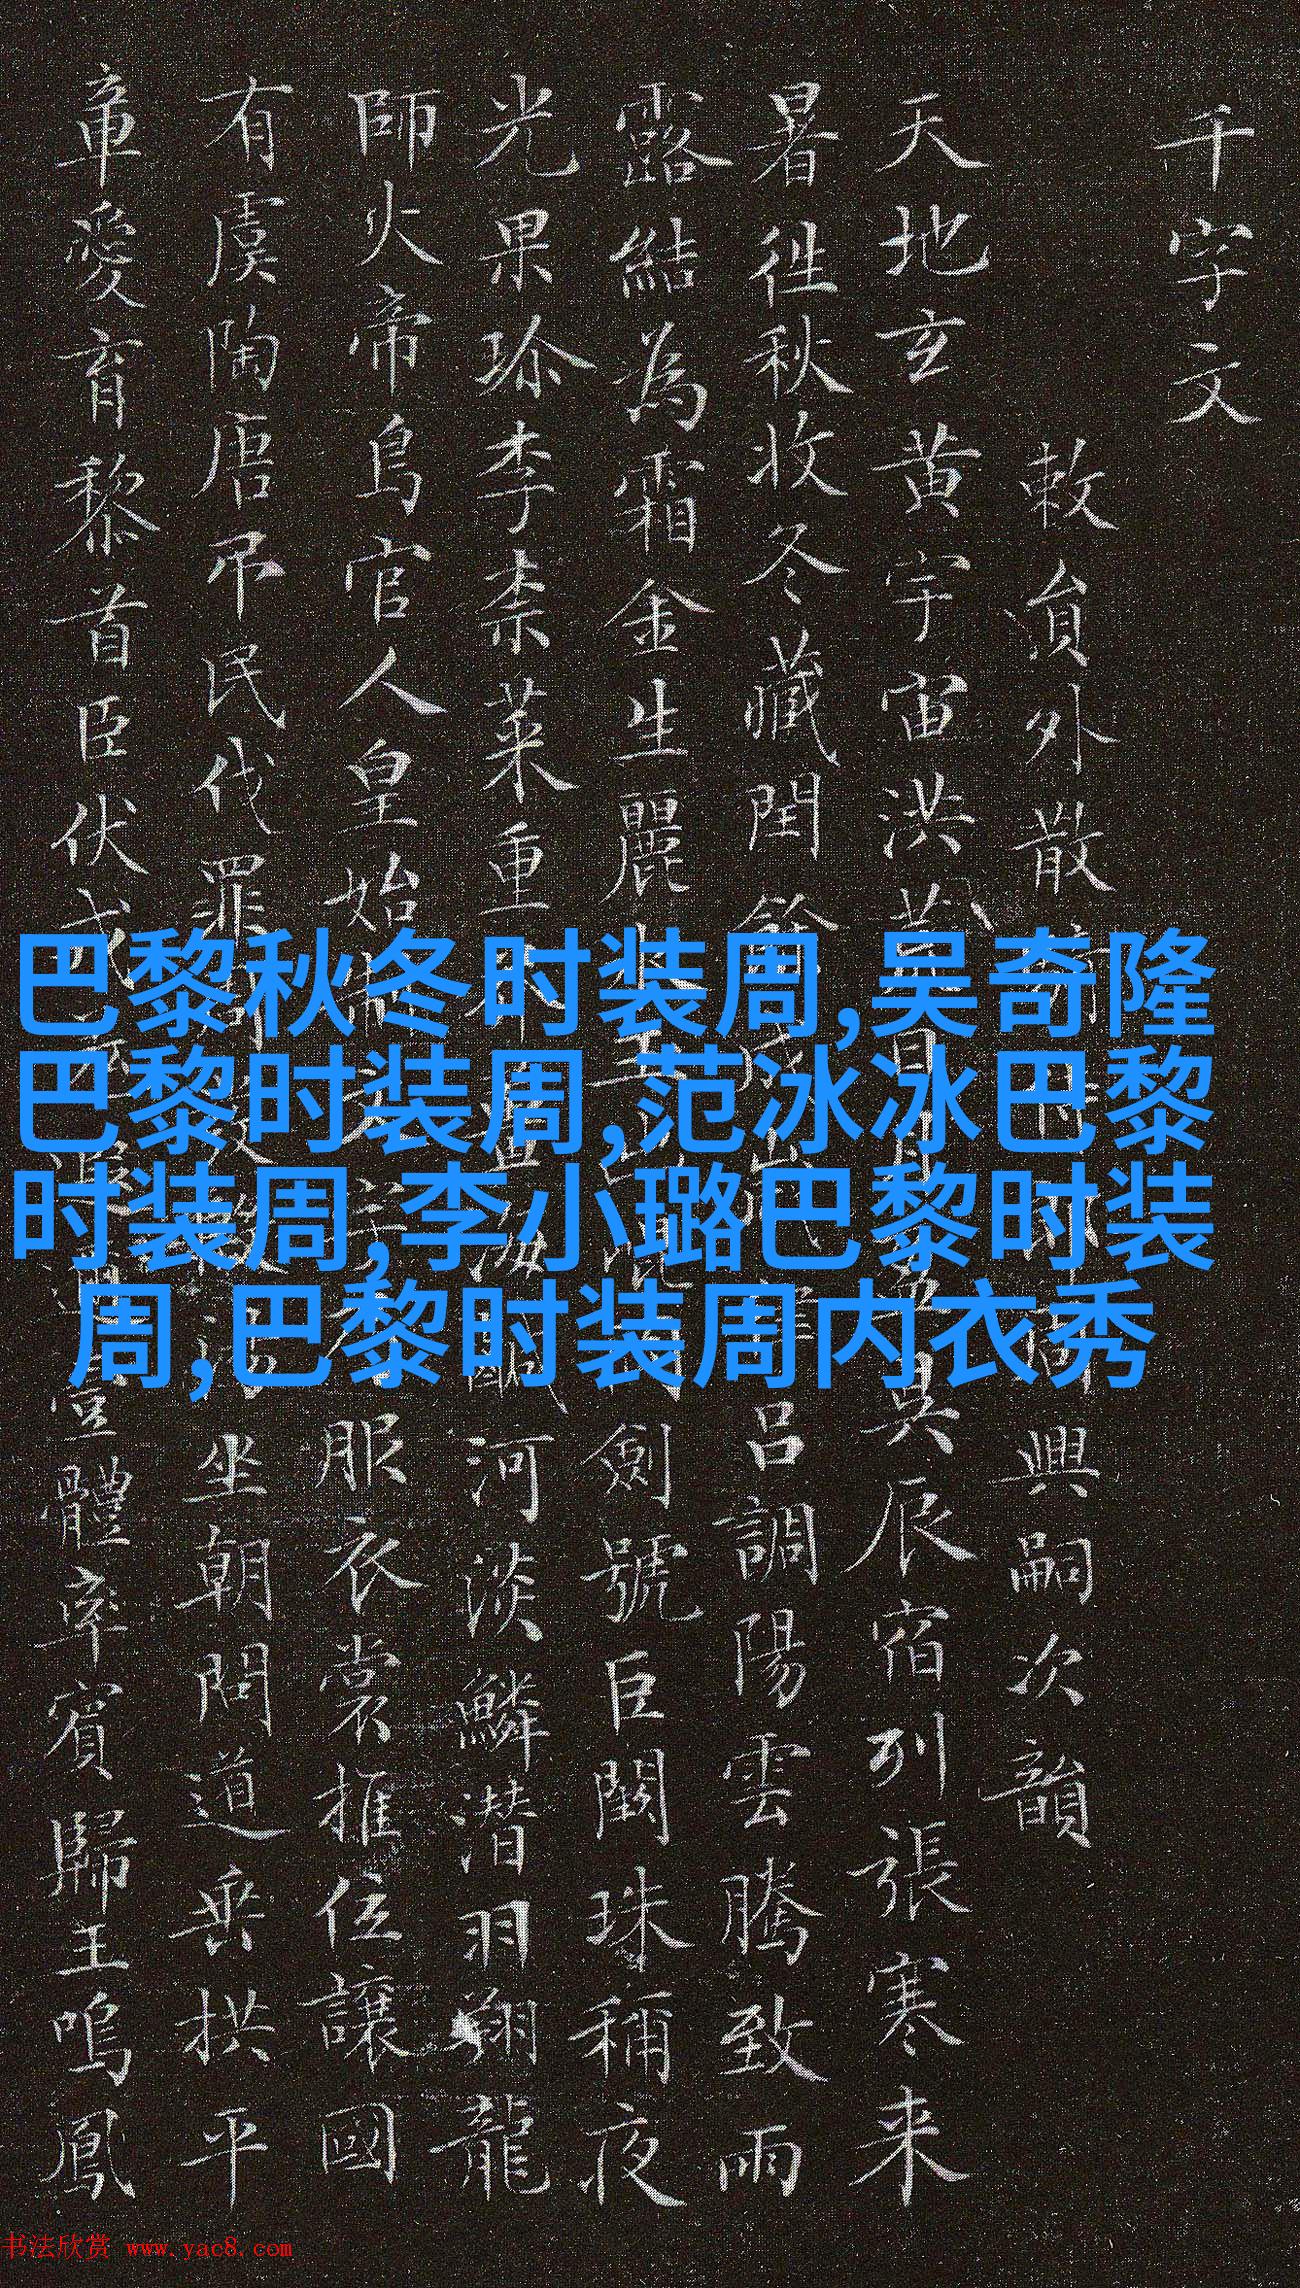 千字文
敕員外散
興嗣次韻
天地玄黄宇宙洪
辰宿列張寒来
暑往秋收冬藏閏
吕調陽雲騰致雨
露結為霜金生麗
劍號巨闕珠稱夜
光果珍李柰菜重
河淡鱗潜羽翔龍
師火帝鳥官人皇始
服衣裳推位讓國
有虞陶唐弔民伐罪
坐朝問道垂拱平
章愛育黎首臣伏戎
體率賓歸王鳴鳳
巴黎秋冬时装周,吴奇隆
巴黎时装周,范冰冰巴黎
时装周,李小璐巴黎时装
周,巴黎时装周内衣秀
书法欣赏 www.yac8.com